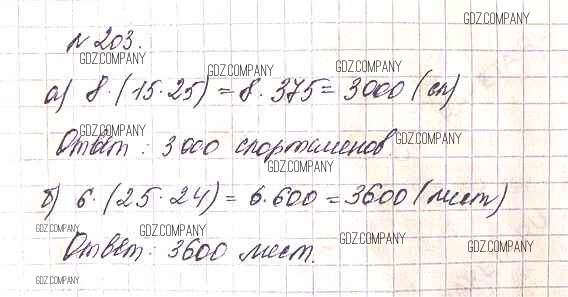 GDZ.COMPANY
№ 203.
GDZ.COMPANY
GDZ.COMPANY GDZ.COMPANY
а) 8·(15·25)=8·375=3000(сп)
GDZ.COMPANY GDZ.COMPANY
Ответ: 3000 спортсменов.
GDZ.COMPANY
б) 6·(25·24)=6·600=3600(мест)
GDZ.COMPANY GDZ.COMPANY GDZ.COMPANY GDZ.COMPANY
Ответ: 3600 мест.
GDZ.COMPANY